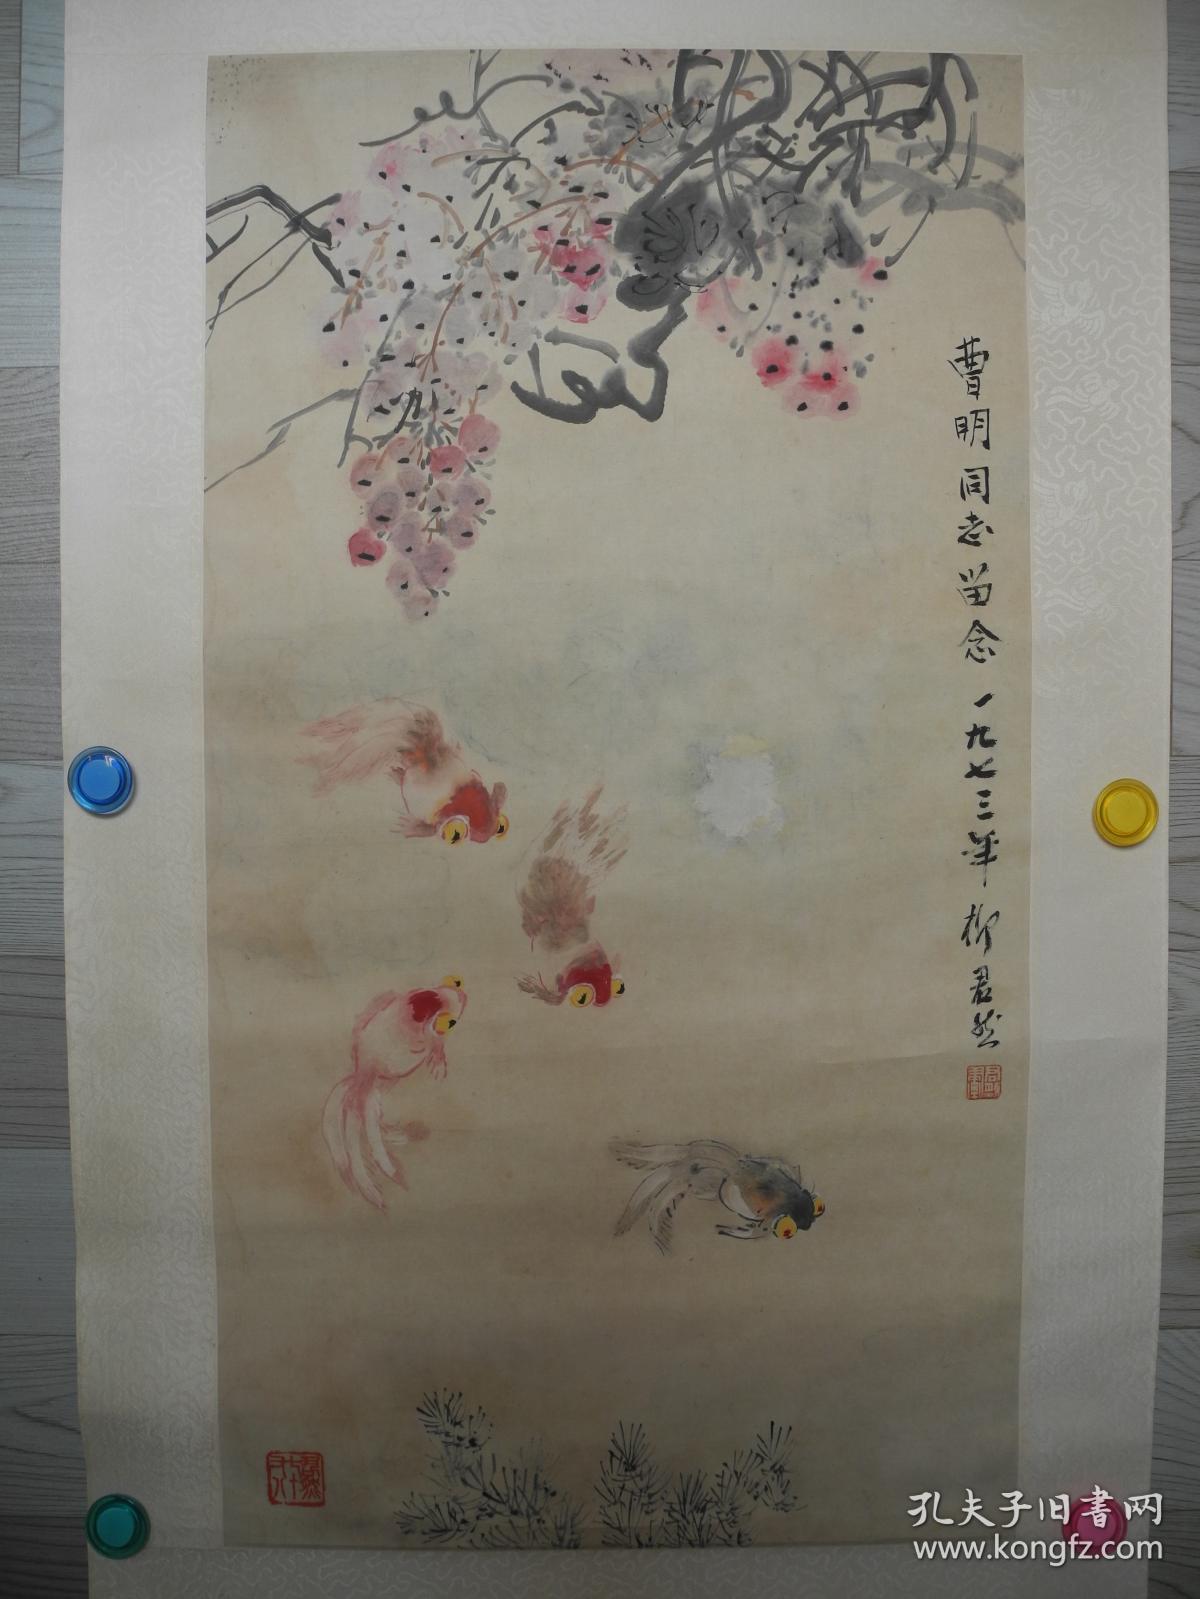 曹明同志留念 一九七三年 柳君然
孔夫子旧書网
www.kongfz.com